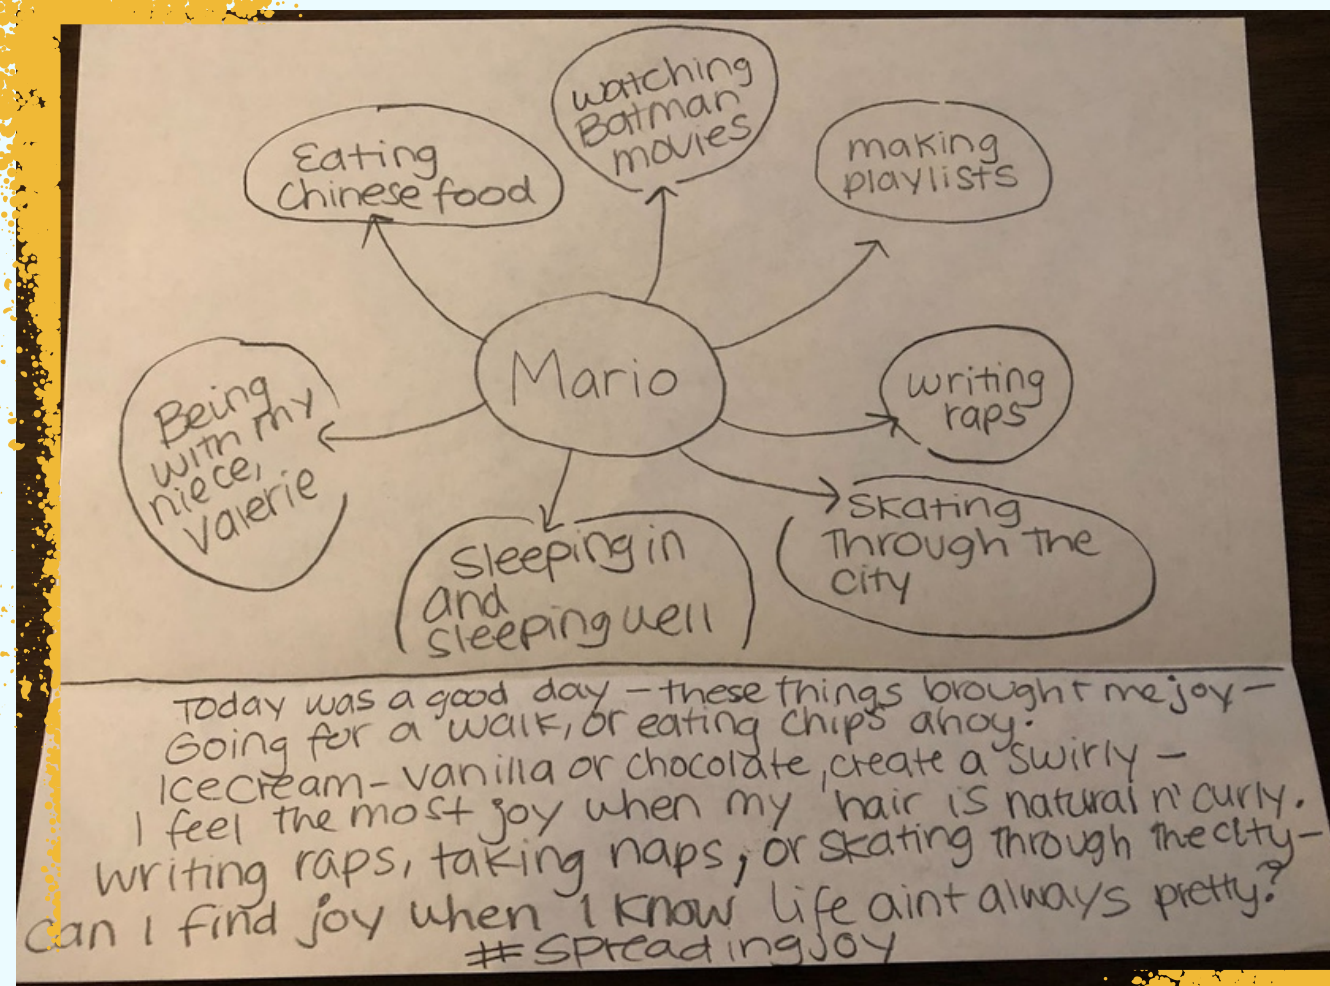 watching
Batman
movies
Eating
Chinese food
making
playlists
Mario
writing
raps
Being
with my
niece,
Valerie
Skating
Through The
city
Sleeping in
and
sleeping well
Today was a good day – these things brought me joy –
Going for a walk, or eating chips ahoy.
Ice cream – vanilla or chocolate, create a swirly –
I feel the most joy when my hair is natural n' curly.
Writing raps, taking naps, or skating through the city –
Can I find joy when I know life aint always pretty?
#spreadingjoy